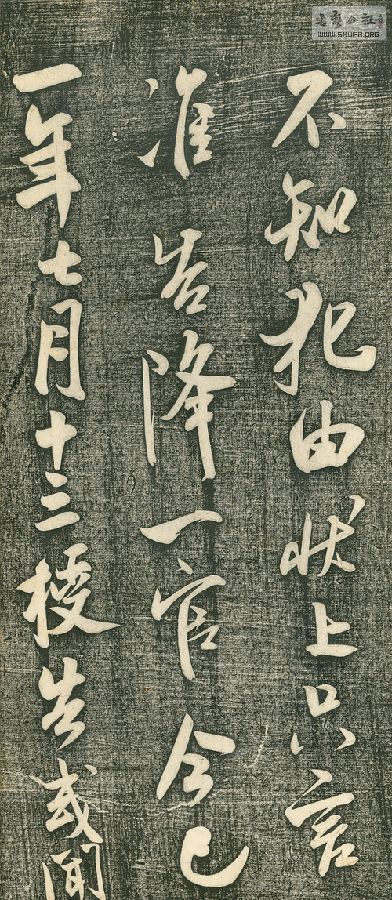 不知犯由状上只言
准告降一官今已
一年七月十三授告或闻
WWW.SHUFA.ORG